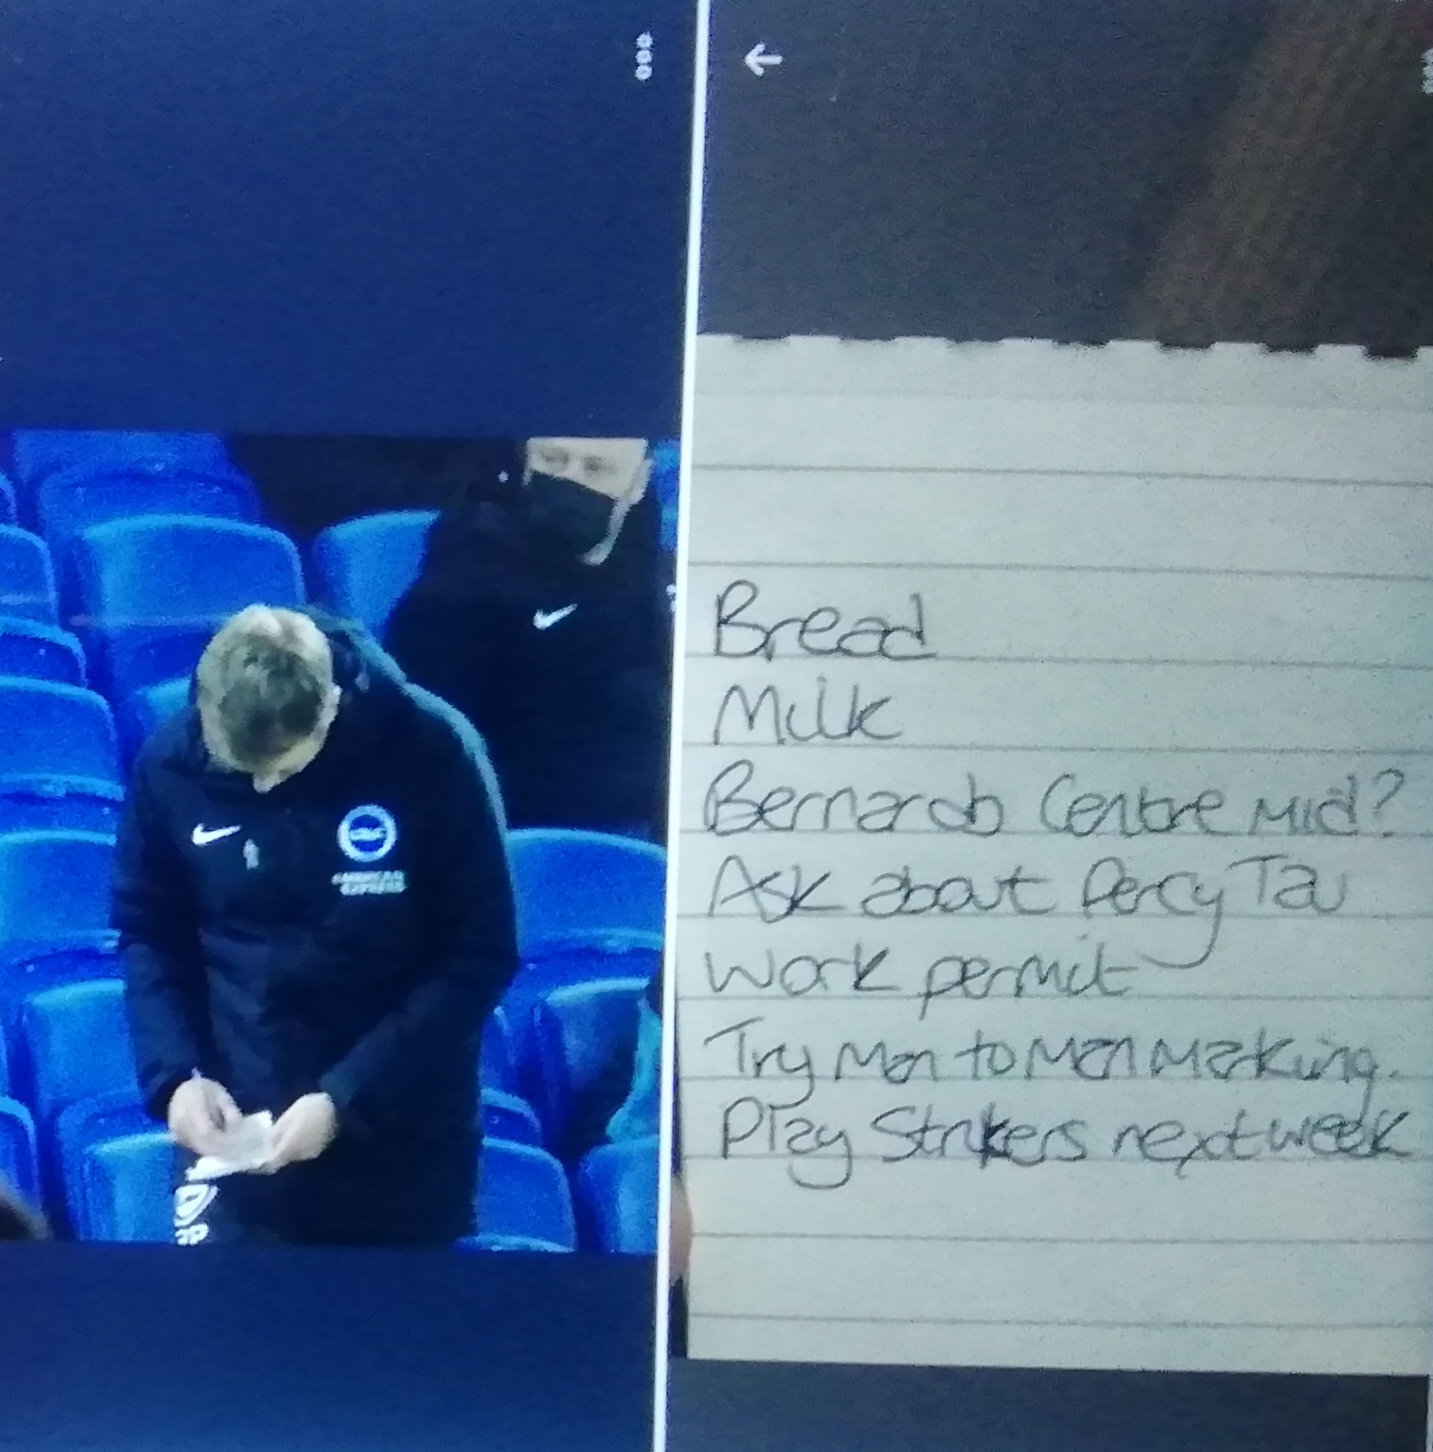 AMERICAN
EXPRESS
Bread
Milk
Bernardo Centre Mid?
Ask about Percy Tau
Work permit
Try Man to Man Marking.
Play Strikers next week